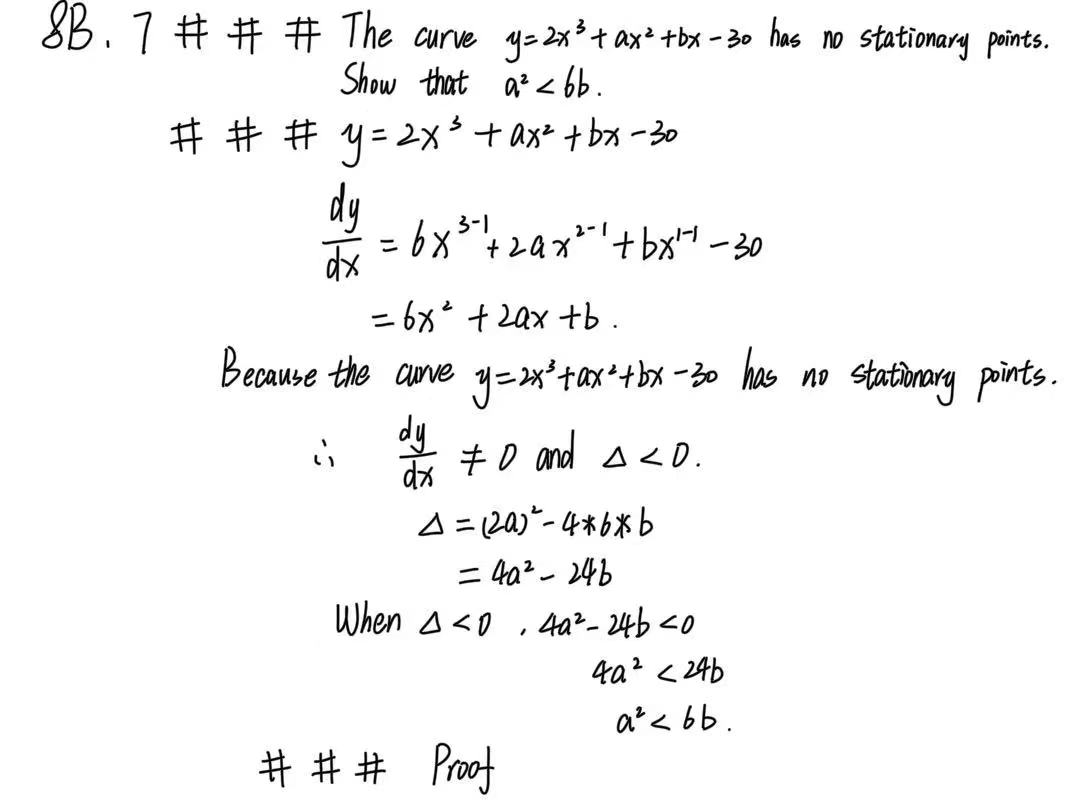 8B. 7 # # # The curve y=2x³+ax²+bx-30 has no stationary points.
Show that a²<6b.
# # # y=2x³+ax²+bx-30
dy/dx = 6x³⁻¹+2ax²⁻¹+bx¹⁻¹-30
=6x²+2ax+b.
Because the curve y=2x³+ax²+bx-30 has no stationary points.
∴ dy/dx ≠ 0 and Δ<0.
Δ=(2a)²-4*6*b
=4a²-24b
When Δ<0, 4a²-24b<0
4a²<24b
a²<6b.
# # # Proof